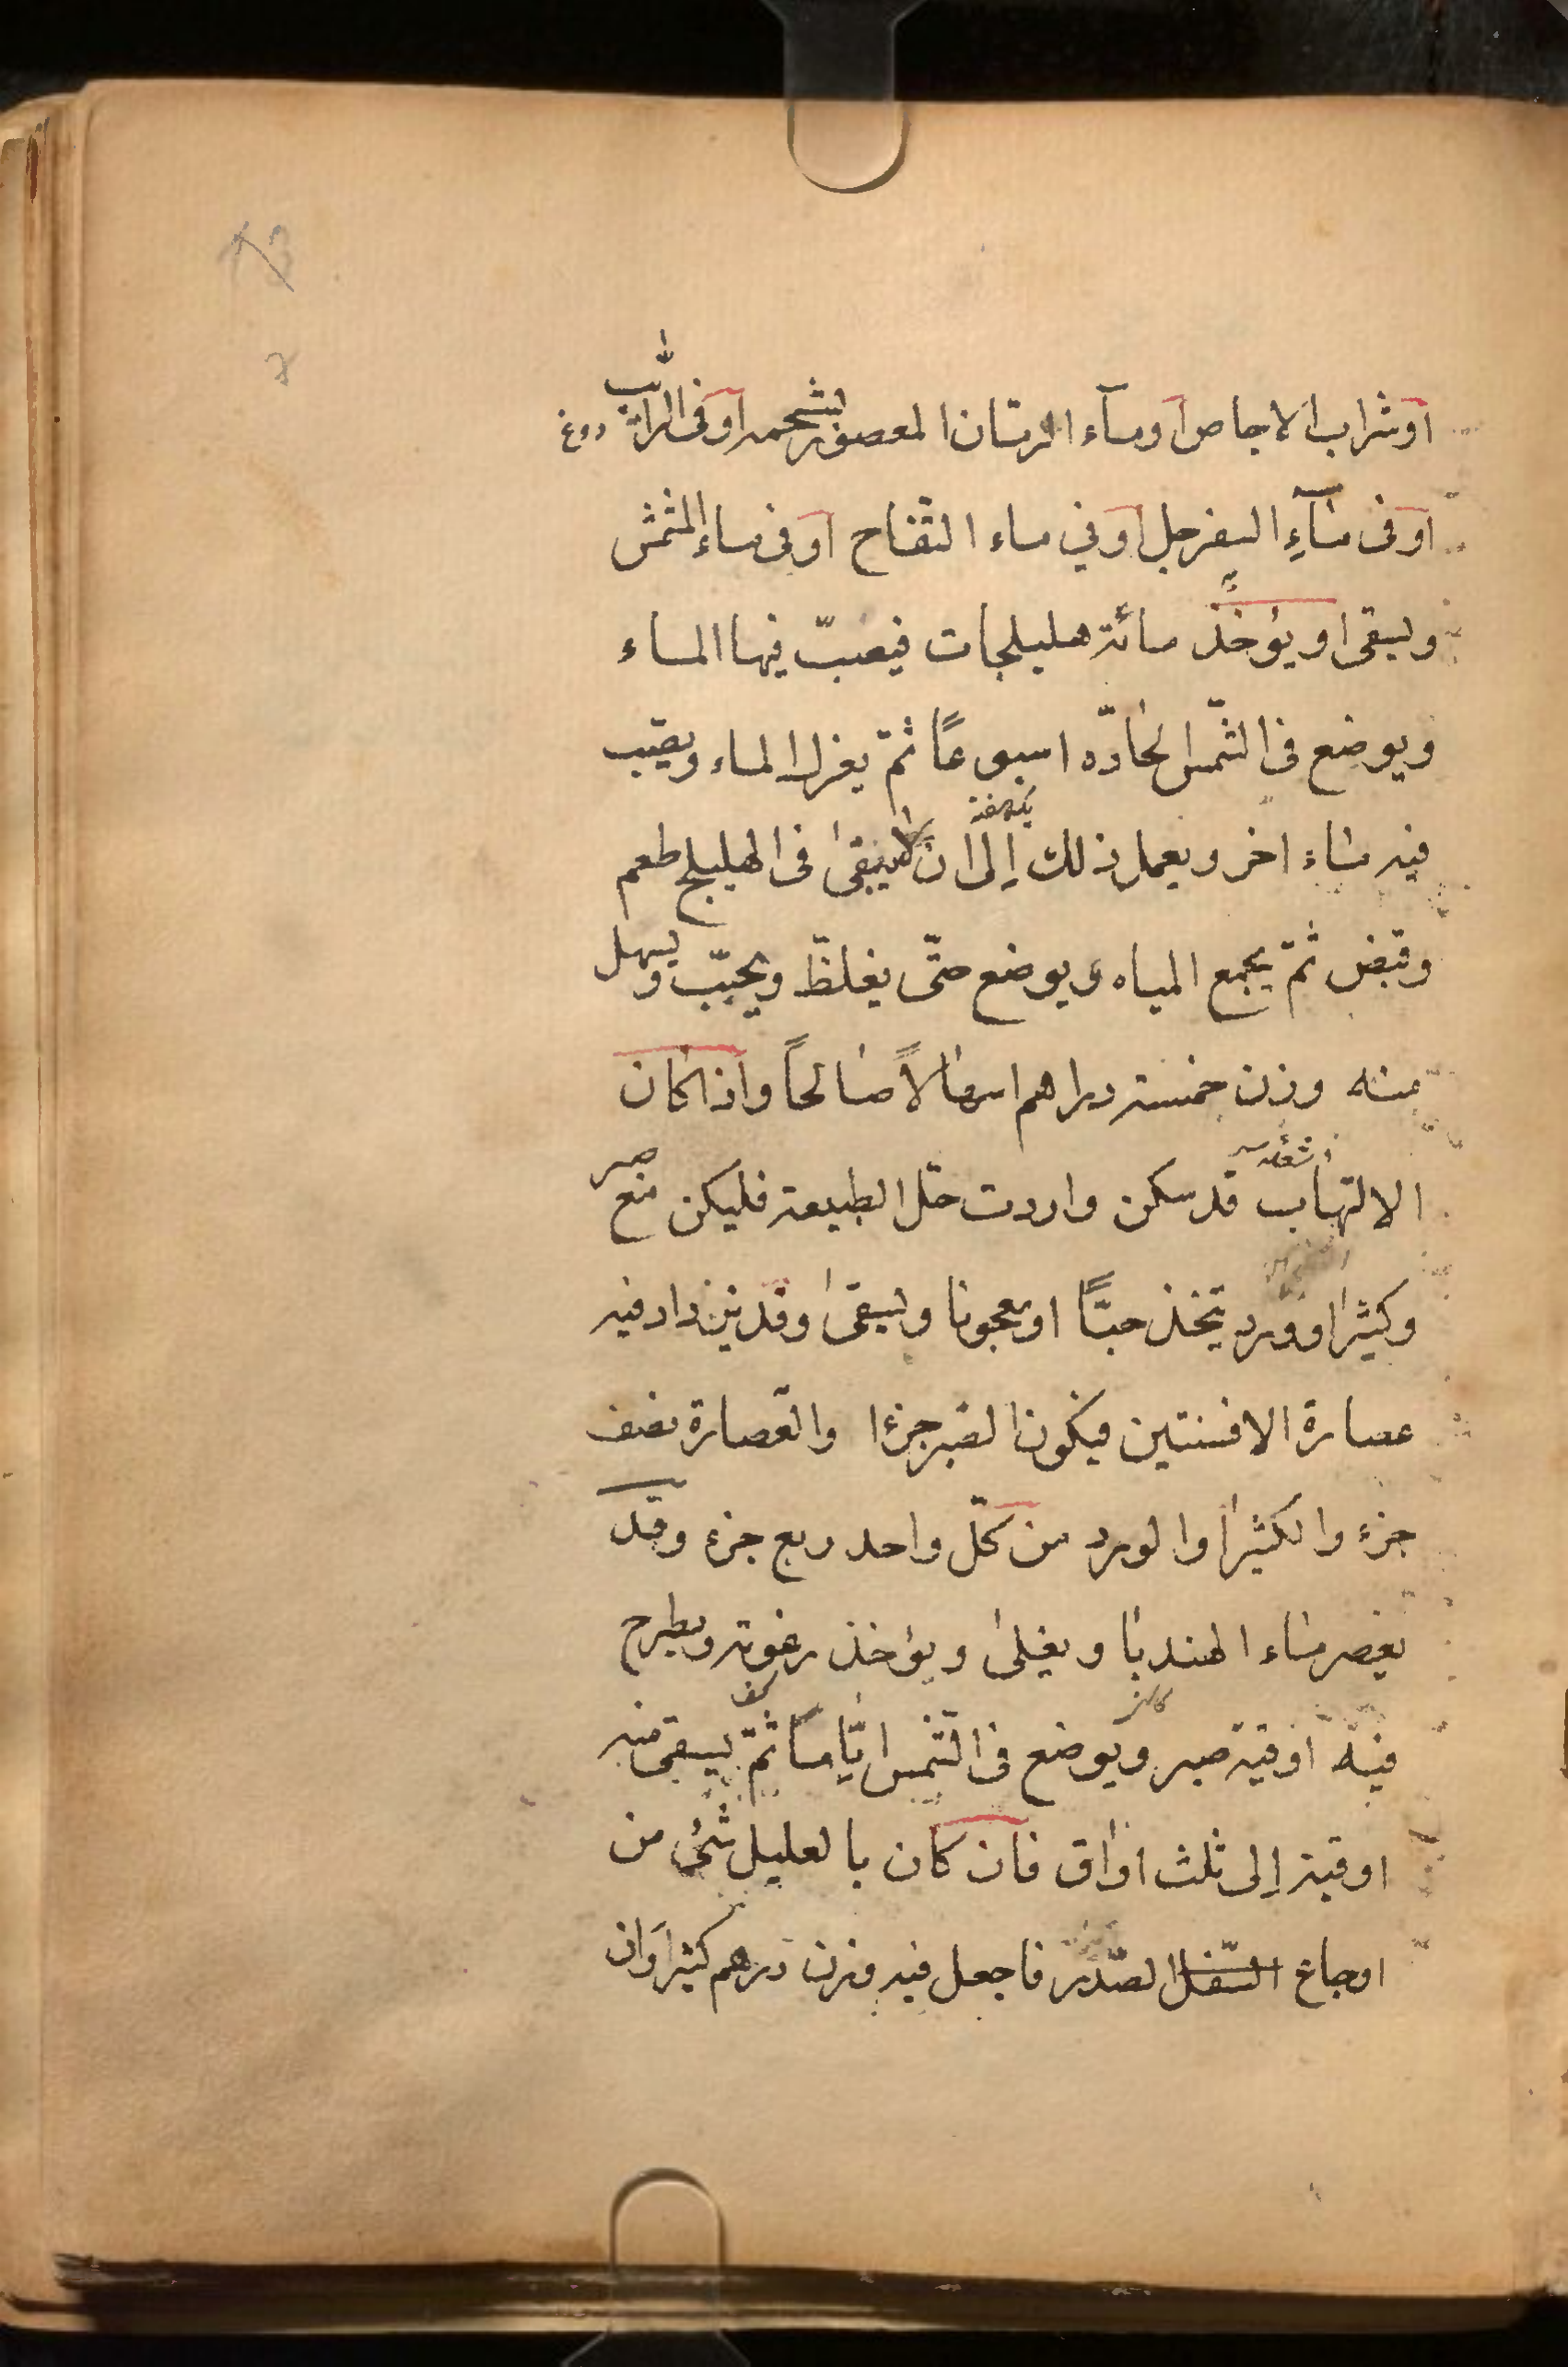 او شراب الاجاص او ماء الرمان المعصور بشحمه او فى الرائب دوغ
او فى ماءِ السفرجل او في ماء التفاح او فى ماء المشمش
ويسقى او يؤخذ مائة هليلجات فيصبّ فيها الماء
ويوضع فى الشّمس الحادّه اسبوعًا ثمّ يعزل الماء ويصب
فيه ماء اخر ويعمل ذلك إلى ان لايبقى فى الهليلج طعم
يكهفته
وقبض ثمّ يجمع المياه ويوضع حتّى يغلظ ويحبّب ويسهل
منه وزن خمسة دراهم اسهالاً صالحاً واذا كان
الالتهاب قد سكن واردت حلّ الطبيعة فليكن مع صبر
وكثيرا وورد يتخذ حبًّا او معجونا ويسقى وقد يزداد فيه
عصارة الافسنتين فيكون الصبر جزءا والعصارة نصف
جزء والكثيرا والورد من كلّ واحد ربع جزء وقد
يعصر ماء الهندبا ويغلى ويؤخذ رغوته ويطرح
كف
فيه اوقية صبر ويوضع فى الشّمس ايّاما ثمّ يسقى منه
اوقية إلى ثلث اواق فان كان بالعليل شئ من
اوجاع السّفل الصّدر فاجعل فيه وزن درهم كثيرا وان